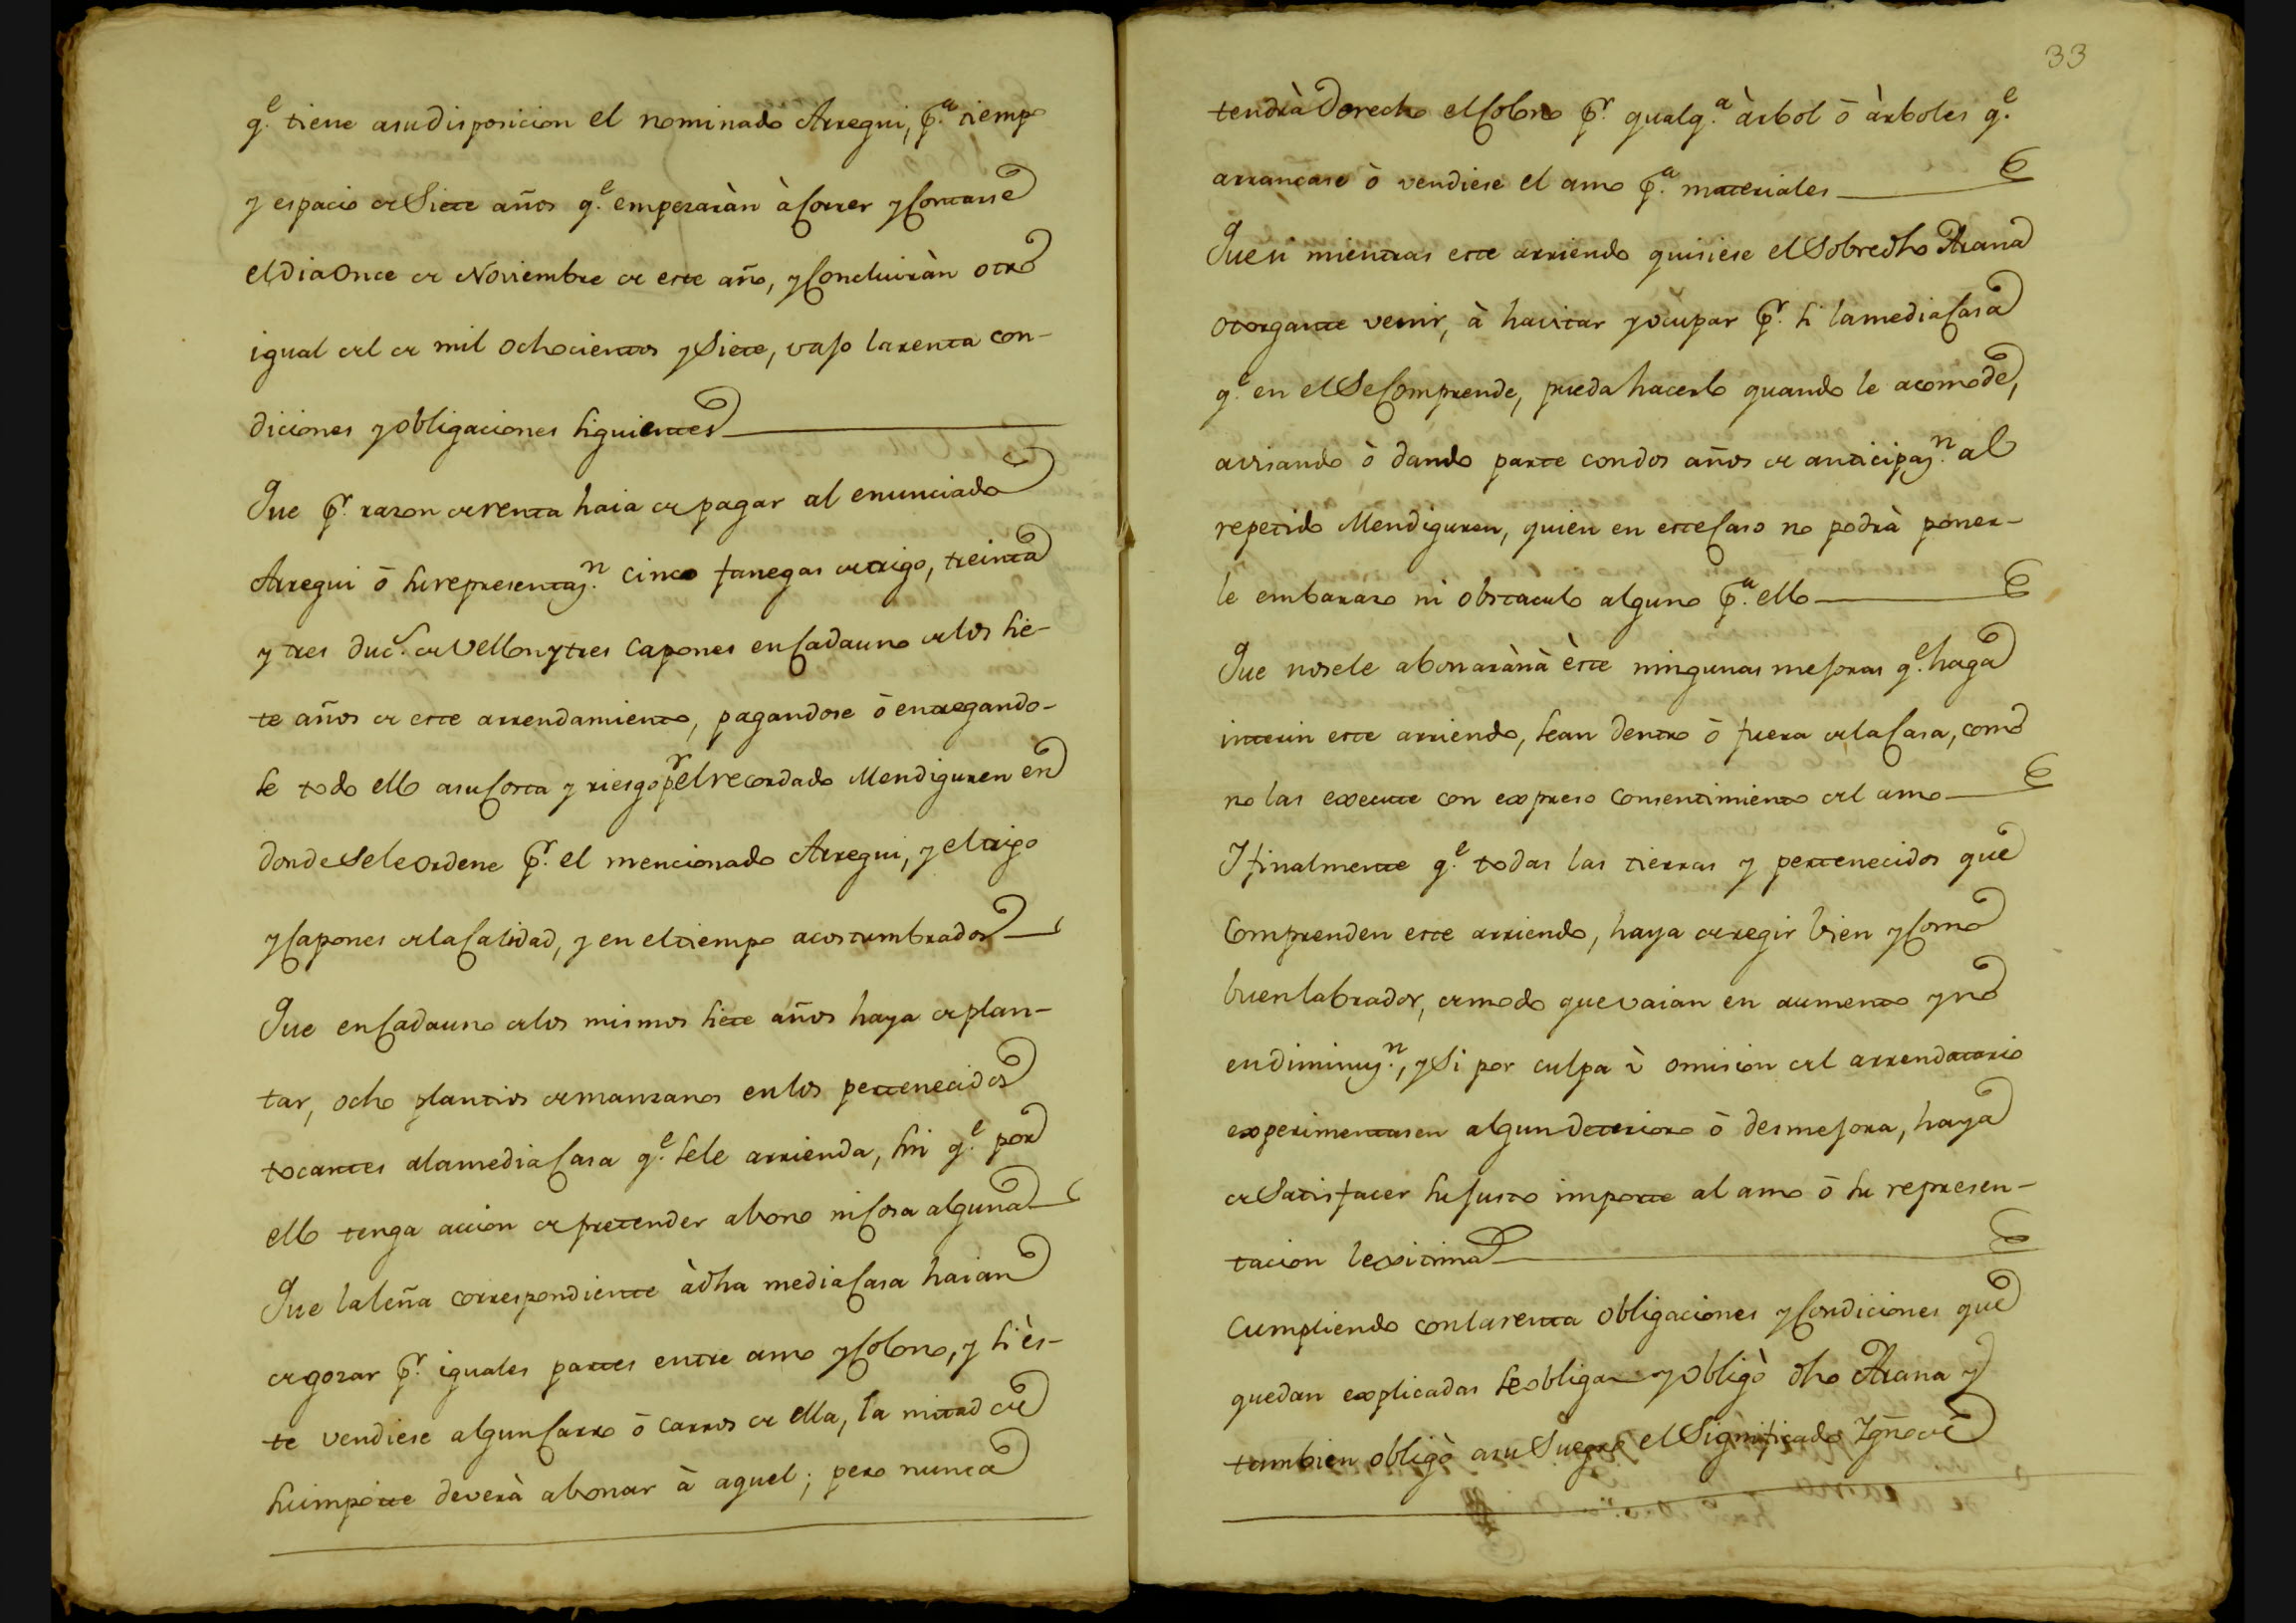 q.e tiene asu disposicion el nominado Arregui, p.a tiempo
y espacio de Siete años q.e empezaràn à Correr y Contarse
el dia Once de Noviembre de este año, y Concluiràn otro
igual del de mil Ochocientos y Siete, vajo la renta con-
diciones y obligaciones siguientes
Que p.r razon de renta haia de pagar al enunciado
Arregui ō su representaz.n cinco fanegas de trigo, treinta
y tres duc.s de Vellon y tres Capones en Cada uno de los sie-
te años de este arrendamiento, pagandose ō entregando-
se todo ello asu Costa y riesgo p.r el recordado Mendiguren en
donde Sele Ordene p.r el mencionado Arregui, y el trigo
y Capones de la Calidad, y en el tiempo acostumbrados
Que en Cada uno de los mismos siete años haya de plan-
tar, ocho plantios de manzanos en los pertenecidos
tocantes ala media Casa q.e sele arrienda, sin q.e por
ello tenga accion de pretender abono ni Cosa alguna
Que la leña correspondiente à dha media Casa haian
de gozar p.r iguales partes entre amo y Colono, y si ès-
te vendiese algun Carro ō carros de ella, la mitad de
su importe deverà abonar à aquel; pero nunca
33
tendrà Derecho el Colono p.r qualq.a àrbol ō àrboles q.e
arrancase ò vendiese el amo p.a materiales
Que si mientras este arriendo quisiese el Sobredho Arana
Otorgante venir, à havitar y ocupar p.r si la media Casa
q.e en el Se Comprende, pueda hacerlo quando le acomode,
avisando ò dando parte con dos años de anticipaz.n al
repetido Mendiguren, quien en este Caso no podrà poner-
le embarazo ni obstaculo alguno p.a ello
Que no sele abonaràn à èste ningunas mejoras q.e haga
interin este arriendo, sean dentro ō fuera de la Casa, como
no las execute con expreso consentimiento del amo
Y finalmente q.e todas las tierras y pertenecidos que
Comprenden este arriendo, haya de regir bien y Como
buen labrador, de modo que vaian en aumento y no
en diminuz.n, y Si por culpa ù omision del arrendatario
experimentasen algun deterioro ō desmejora, haya
de Satisfacer su justo importe al amo ō su represen-
tacion lexitima
Cumpliendo con la renta Obligaciones y Condiciones que
quedan explicadas se obliga y Obligò dho Arana y
tambien obligò asu Suegro el Significado Ygn.o de